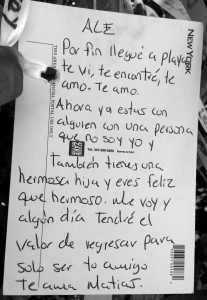 ALE
NEW YORK
Por fin llegué a playa
te vi, te encontré, te
amo. te amo.
Ahora ya estas con
alguien con una persona
que no soy yo y
también tienes una
hermosa hija y eres feliz
que hermoso. Me voy y
algún día tendré el
valor de regresar para
solo ser tu amigo
te ama Matias.